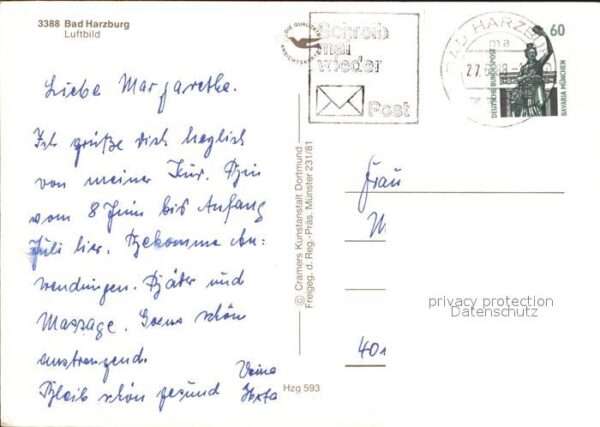 3388 Bad Harzburg
Luftbild
Liebe Margaretha.
Ich grüße dich herzlich
von meiner Kur. Bin
vom 8 Juni bis Anfang
Juli hier. Bekomme An:
wendungen. Bäder und
Massage. schön
anstrengend.
Bleib schön gesund Deine
DIE QUALITÄTS
ANSICHTSKARTE
Schreib
mal
wieder
Post
BAD HARZBURG
ma
27.6
60
DEUTSCHE BUNDESPOST
BAVARIA MÜNCHEN
© Cramers Kunstanstalt Dortmund
Freigeg. d. Reg.-Präs. Münster 231/81
Hzg 593
Frau
401
privacy protection
Datenschutz